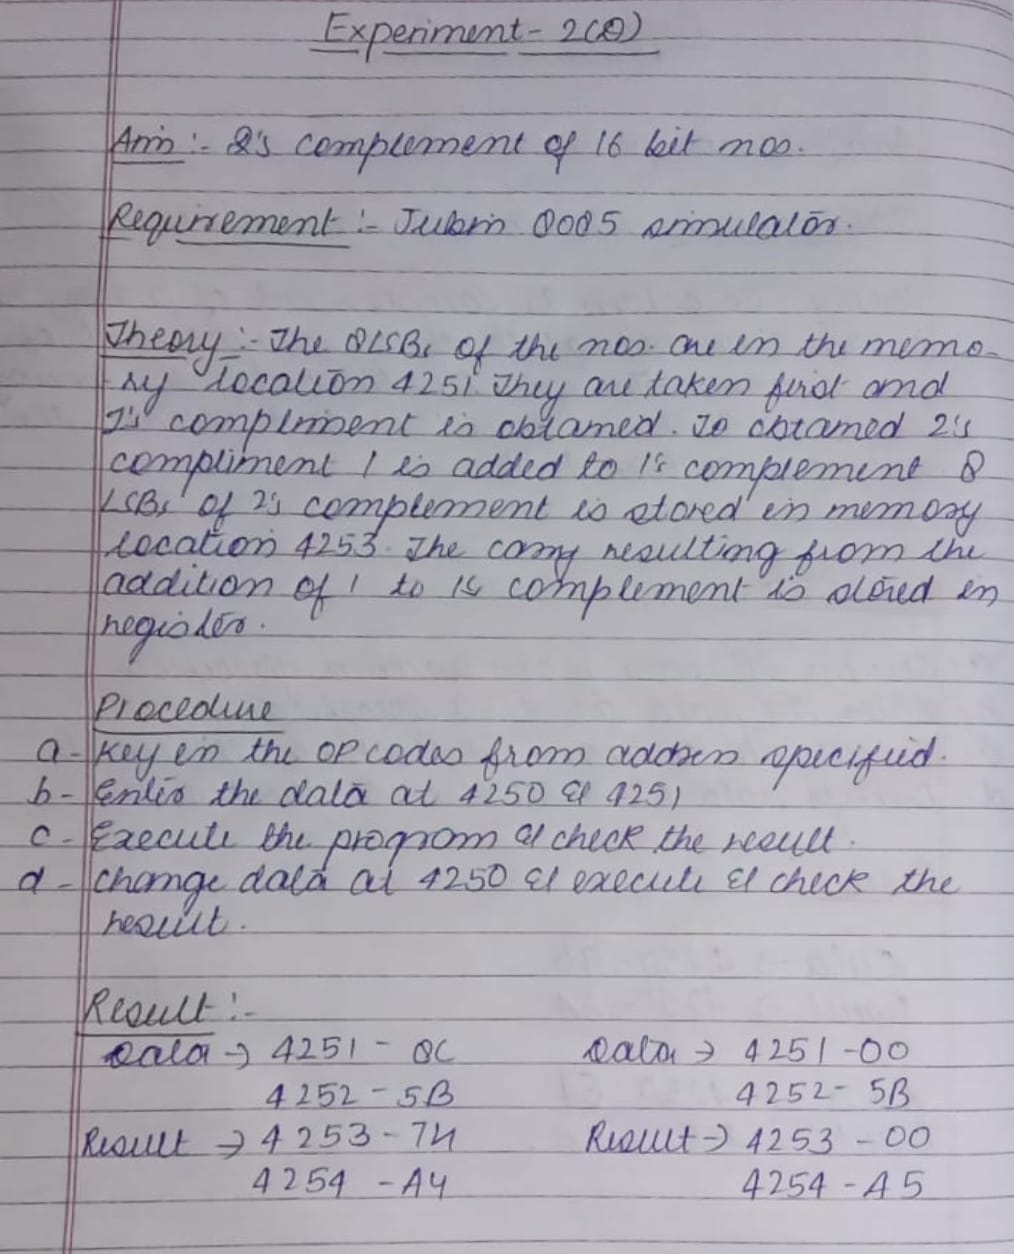 Experiment - 2(B)
Aim :- 2's complement of 16 bit nos.
Requirement :- Jubin 8085 simulator.
Theory :- The 8LSBs of the nos. are in the memo-
ry location 4251. They are taken first and
1's compliment is obtained. To obtained 2's
compliment 1 is added to 1's complement 8
LSBs of 2's complement is stored in memory
location 4253. The carry resulting from the
addition of 1 to 1's complement is stored in
register.
Procedure
a - Key in the OPcodes from address specified.
b - Enter the data at 4250 & 4251
c - Execute the program & check the result.
d - Change data at 4250 & execute & check the
result.
Result :-
Data → 4251 - 8C
Data → 4251 - 00
4252 - 5B
4252 - 5B
Result → 4253 - 74
Result → 4253 - 00
4254 - A4
4254 - A5